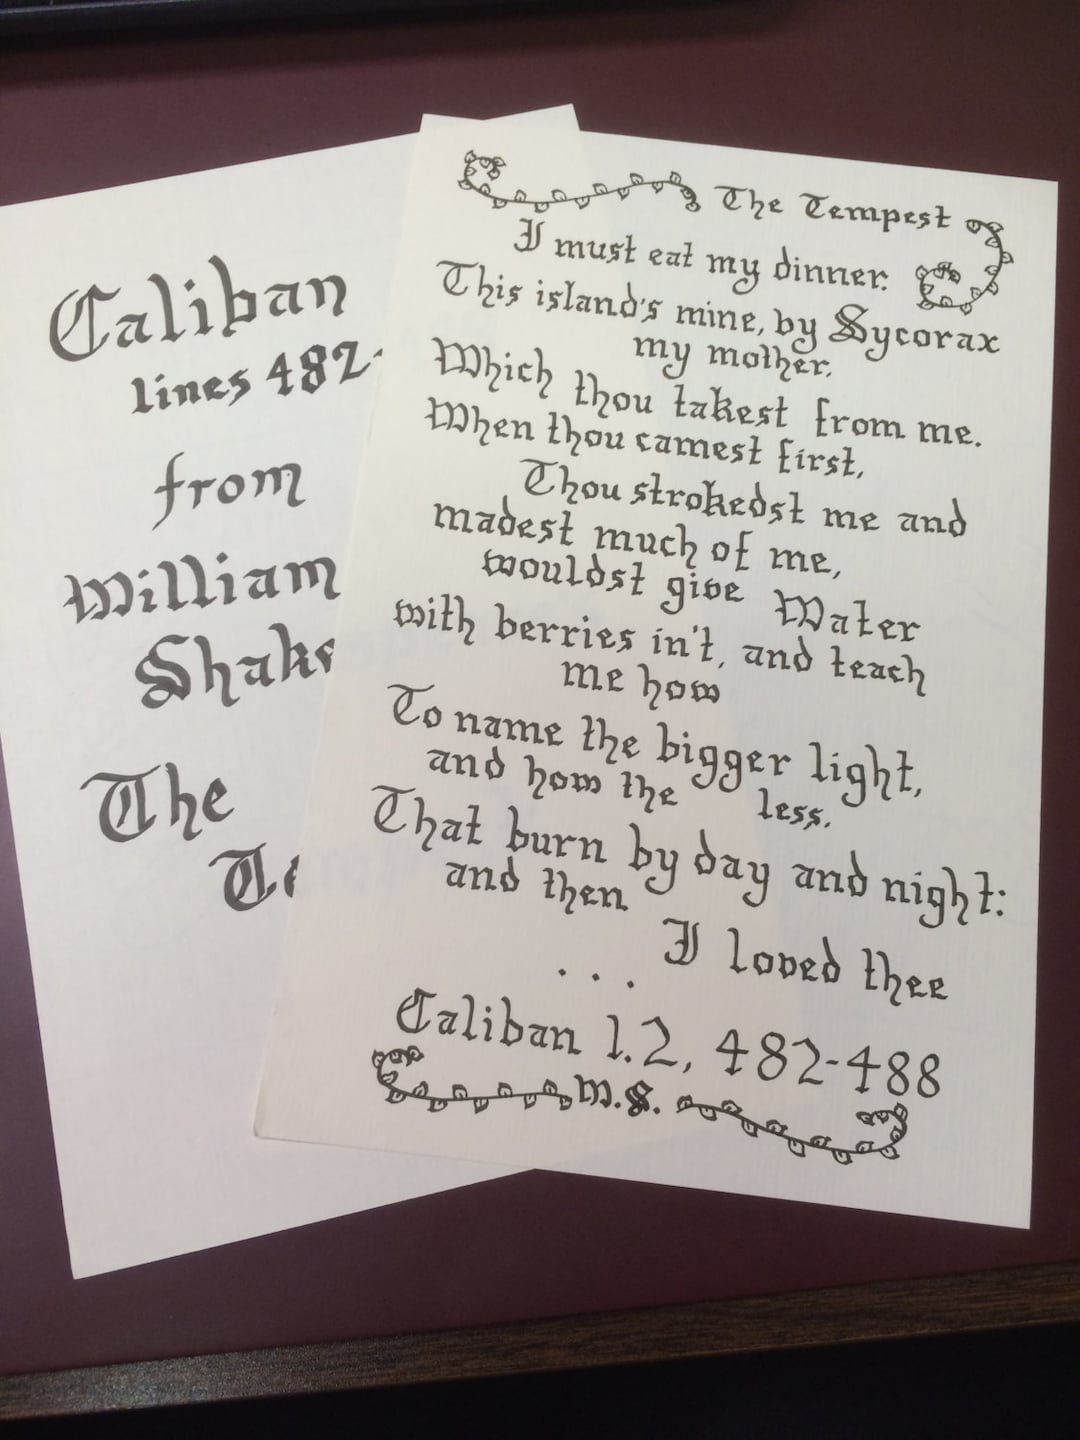 Caliban
lines 482-
from
William
Shake
The
Te
The Tempest
I must eat my dinner.
This island's mine, by Sycorax
my mother,
Which thou takest from me.
When thou camest first,
Thou strokedst me and
madest much of me,
wouldst give Water
with berries in't, and teach
me how
To name the bigger light,
and how the less,
That burn by day and night:
and then
I loved thee
...
Caliban 1.2, 482-488
W.S.